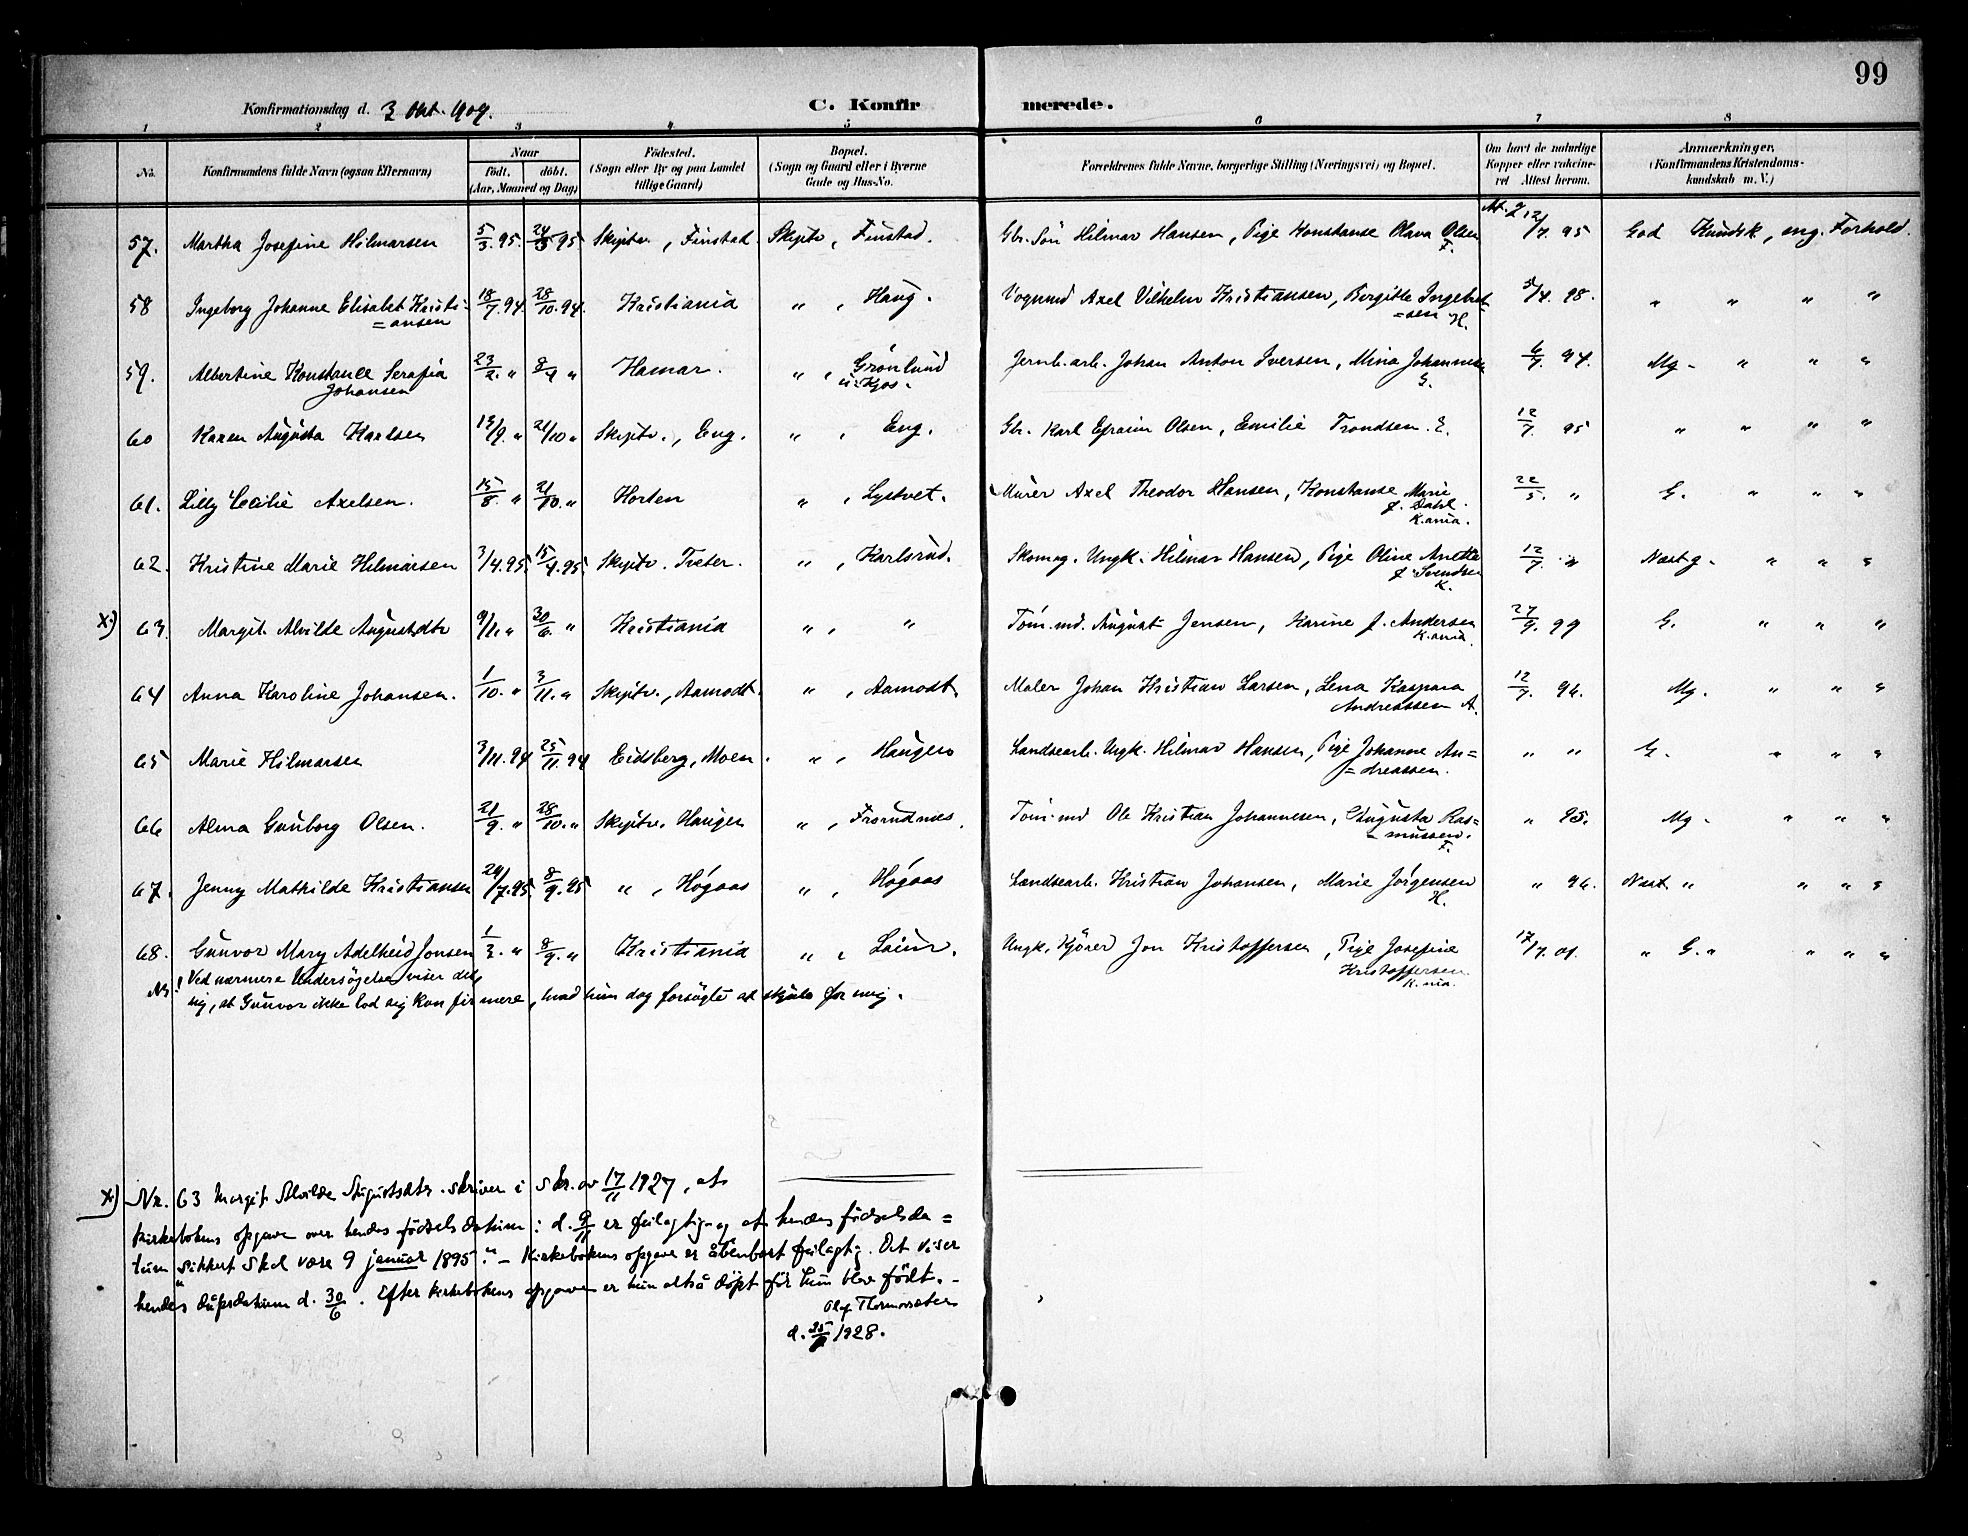 99
Konfirmationsdag d. 3 Okt. 1909.
C. Konfirmerede.
1 2 3 4 5 6 7 8
No. Konfirmandens fulde Navn (ogsaa Efternavn) Naar født. døbt. (Aar, Maaned og Dag) Fødested. (Sogn eller By og paa Landet tillige Gaard) Bopæl. (Sogn og Gaard eller i Byerne Gade og Hus-No. Forældrenes fulde Navne, borgerlige Stilling (Næringsvei) og Bopæl. Om havt de naturlige Kopper eller vakcineret Attest herom. Anmærkninger. (Konfirmandens Kristendomskundskab m. V.)
57. Martha Josefine Hilmarsen 5/3.95. 24/3 95 Skiptv., Finstad. Skiptv, Finstad. Gbr. Søn Hilmar Hansen, Pige Konstanse Olava Olsen F. At. 12/7. 95 God Kundsk, mg. Forhold.
58 Ingeborg Johanne Elisabet Kristi=ansen 18/7.94. 28/10.94. Kristiania " , Haug. Vognmd Axel Vilhelm Kristiansen, Bergitte Ingebret=sen H. 5/4. 98. " " " "
59. Albertine Konstance Serafia Johansen 23/2. " 8/4 " Hamar. " , Grønlund i Kjos. Jernb.arb. Johan Anton Iversen, Mina Johannesen G. 6/7. 94. Mg. " " "
60 Karen Augusta Karlsen 13/9. " 21/10 " Skiptv., Eng. " , Eng. Gbr. Karl Efraim Olsen, Emilie Trondsen. E. 12/7. 95 " " " "
61. Lilly Cecilie Axelsen. 15/8. " 21/10. " Horten " , Lystvet. Murer Axel Theodor Hansen, Konstanse Marie f. Dahl. K.ania. 22/5. " G. " " "
62. Kristine Marie Hilmarsen 3/4.95. 15/4.95. Skiptv. Tveter. " , Karlsrud. Skomag. Ungk. Hilmar Hansen, Pige Oline Anette f. Svendsen K. 12/7. " Næst g. " " "
x) 63. Margit Alvilde Augustsdtr 9/11. " 30/6. " Kristiania " , " Tøm.md. August Jensen, Karine f. Andersen K.ania. 27/9. 99 G. " " "
64 Anna Karoline Johansen. 1/10. " 3/11. " Skiptv., Aamodt. " , Aamodt. Maler Johan Kristian Larsen, Lena Kaspara Andreassen A. 12/7. 96. Mg. " " "
65 Marie Hilmarsen 3/11.94 25/11.94 Eidsberg, Moen. " , Haugen Landsearb. Ungk. Hilmar Hansen, Pige Johanne An=dreassen. " " G. " " "
66 Alma Gunborg Olsen. 21/9. " 28/10. " Skiptv. Haugen " , Frorudnes. Tøm.md Ole Kristian Johannesen, Augusta Ras=mussen. F. " 95. Mg. " " "
67. Jenny Mathilde Kristiansen 24/7.95. 8/9.95 " , Høgaas " , Høgaas Landsearb. Kristian Johansen, Marie Jørgensen H. " 96. Næst " " " "
68. Gunvor Mary Adelheid Jonsen 1/2. " 8/9. " Kristiania " , Laim. Ungk. Kjører Jon Kristoffersen, Pige Josefine Kristoffersen. K.nia. 17/7. 01. " G. " " " "
NB! Ved nærmere Undersøgelse viser det
sig, at Gunvor ikke lod sig konfirmere, hvad hun dog forsøgte at skjule for mig.
x) Nr. 63 Margit Alvilde Augustsdtr. skriver i skr. av 17/11 1927, at
kirkebokens opgave over hendes fødselsdatum: d. 9/11 er feilagtig og at hendes fødselsda=
tum "sikkert skal være 9 januar 1895." – Kirkebokens opgave er åbenbart feilagtig. Det viser
hendes dåpsdatum d. 30/6. Efter kirkebokens opgaven er hun altså døpt før hun blev født. –
Olaf Thormodsæter
d. 25/9 1928.